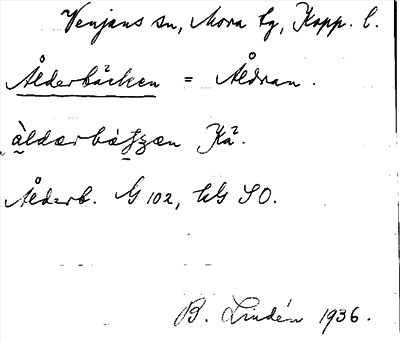 Venjans sn, Mora tg, Kopp. l.
Ålderbäcken = Åldran.
Ka².
Ålderb. G 102, SO.
B. Lindén 1936.